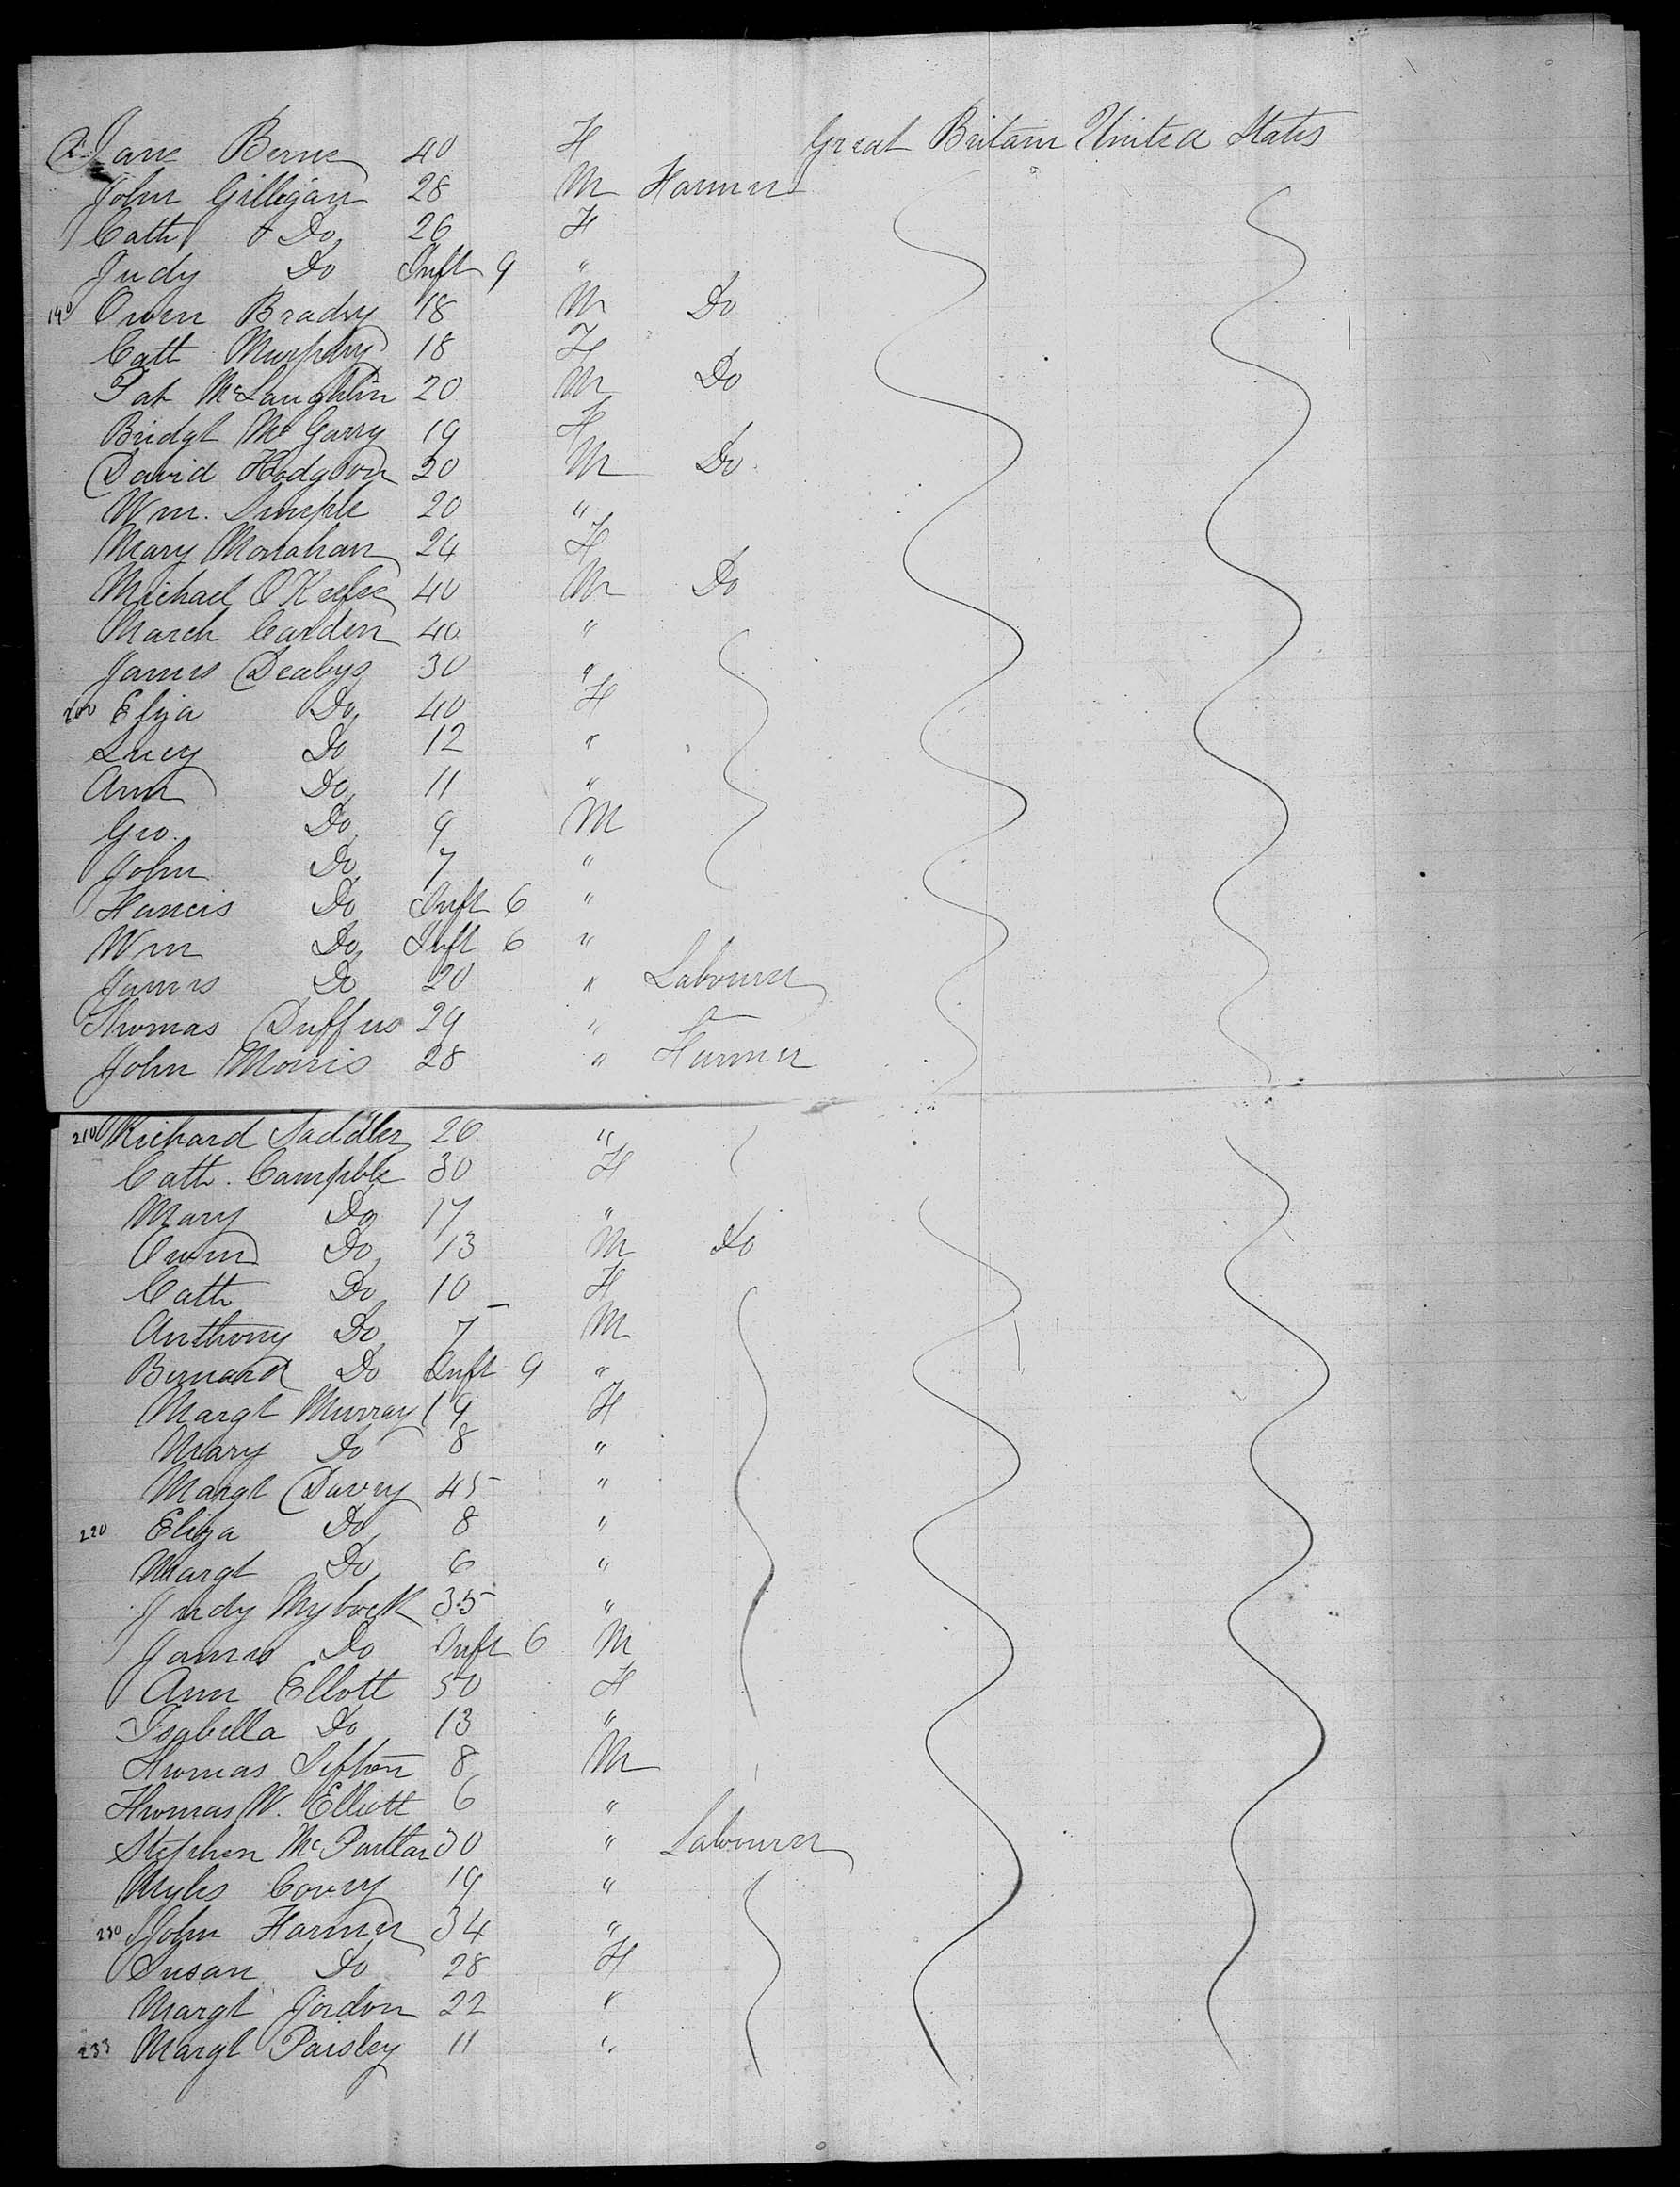 Jane Berne 40 F Great Britain United States
John Gilligan 28 M Farmer
Cath Do 26 F
Judy Do Inft 9 "
190 Owen Brady 18 M Do
Cath Murphy 18 F
Pat McLaughlin 20 M Do
Bridgt McGarry 19 F
David Hodgson 20 M Do
Wm. 20 "
Mary Monahan 24 F
Michael OKeefe 40 M Do
March Carden 40 "
James 30 "
200 Eliza Do 40 F
Lucy Do 12 "
Ann Do 11 "
Geo. Do 9 M
John Do 7 "
Francis Do Inft 6 "
Wm Do Inft 6 "
James Do 20 " Labourer
Thomas 29 "
John Morris 28 " Farmer
210 Richard Saddler 26 "
Cath. Campble 30 F
Mary Do 17 "
Owen Do 13 M Do
Cath Do 10 F
Anthony Do 7 M
Bernard Do Inft 9 "
Margt Murray 19 F
Mary Do 8 "
Margt Davey 45 "
220 Eliza Do 8 "
Margt Do 6 "
Judy 35 "
James Do Inft 6 M
Ann Ellott 50 F
Isabella Do 13 "
Thomas Sefton 8 M
Thomas W. Elliott 6 "
Stephen McPartlan 30 " Labourer
Myles 19 "
230 John Farmer 34 "
Susan Do 28 F
Margt Jordon 22 "
233 Margt Paisley 11 "